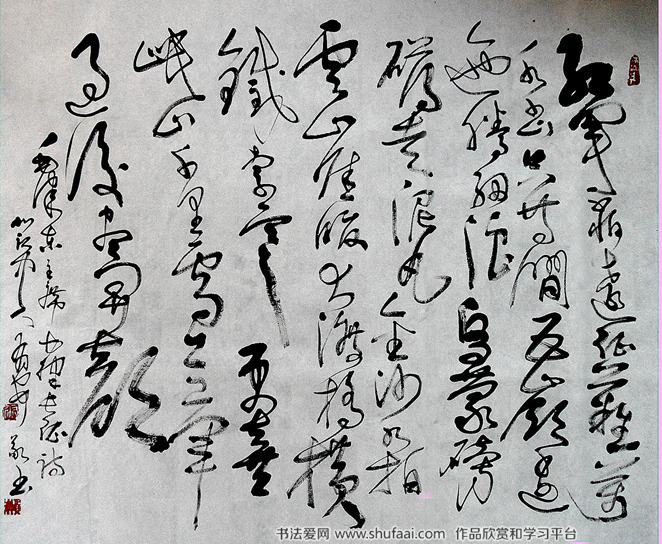 紅軍不怕遠征難萬
水千山只等閒五岭逶
迤騰細浪烏蒙磅
礴走泥丸金沙水拍
雲崖暖大渡橋横
鐵索寒更喜
岷山千里雪三軍
過後盡開顏
毛澤東主席七律長征詩
书法爱网 www.shufaai.com 作品欣赏和学习平台